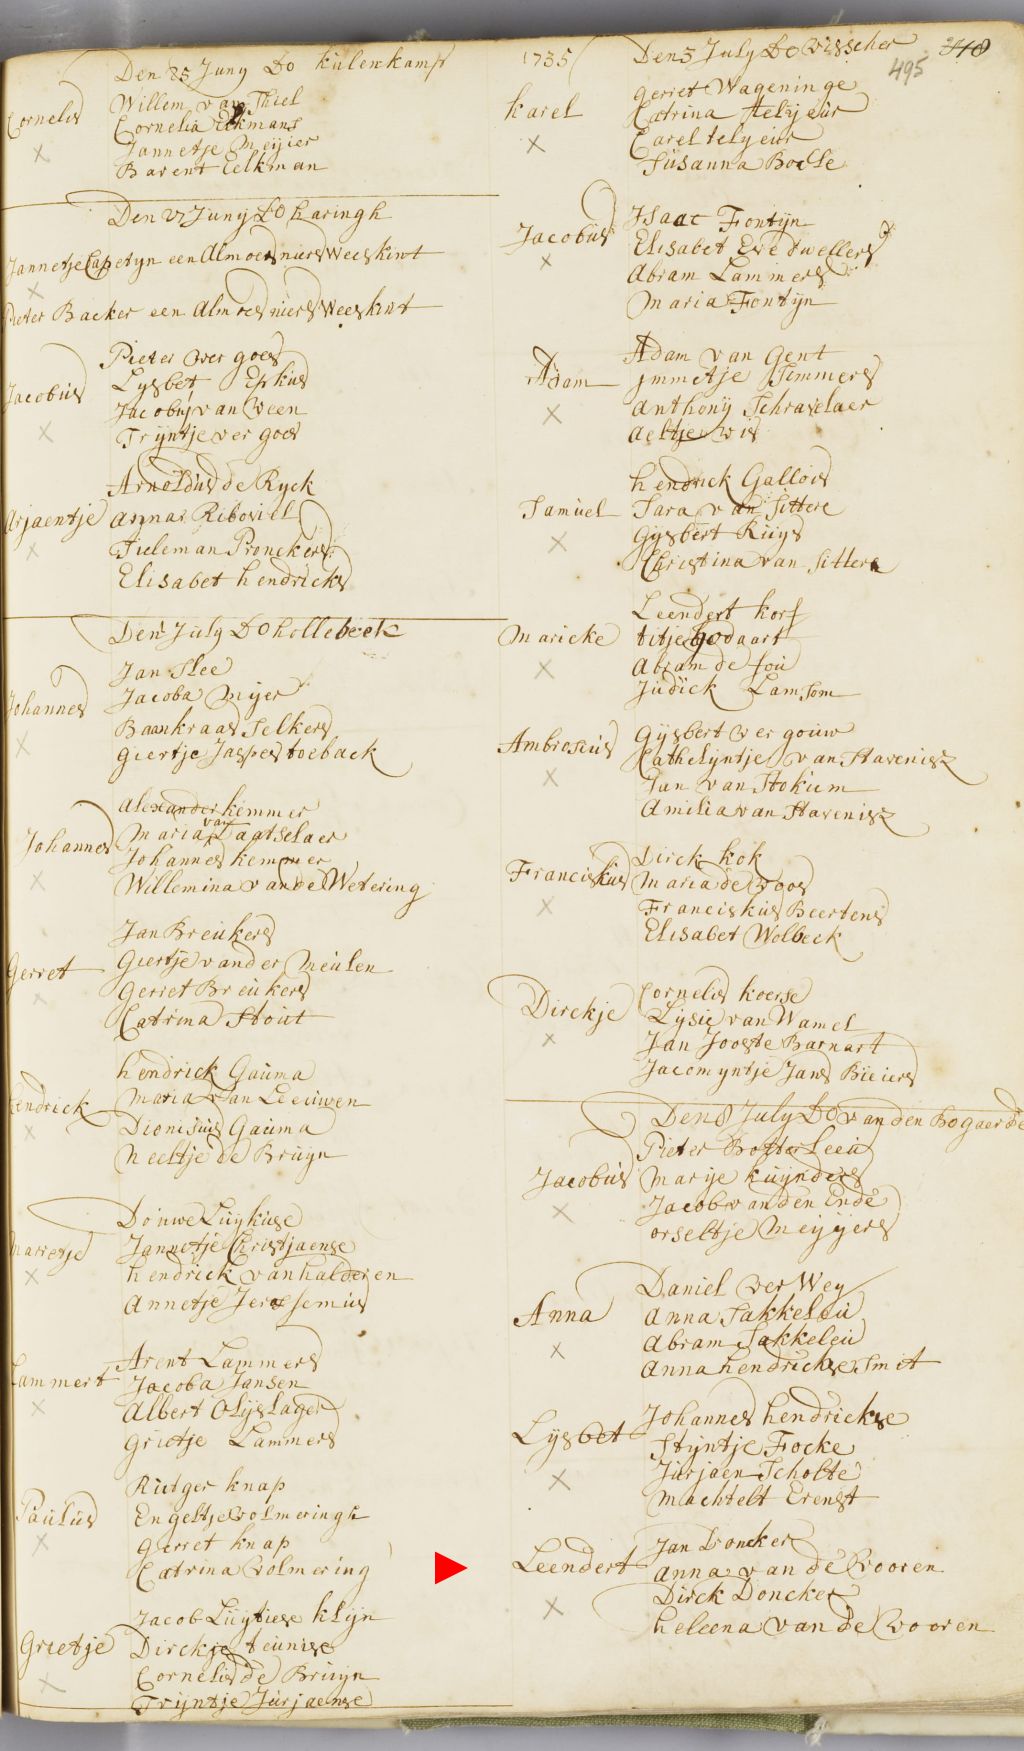 Den 25 Juny Do kulenkamp
Cornelis
Willem van Thiel
Cornelia Eekmans
Jannetje Meyier
Barent Eelkman
Den 27 Juny Do haringh
Jannetje Capetyn een Almoesniers Weeskint
Pieter Backer een Almoesniers Weeskint
Jacobus
Pieter ver goes
Lysbet Epkus
Jacobus van Ween
Tryntje ver goes
Arjaentje
Arnoldus de Ryck
anna Ribosiel
Tieleman Pronckers
Elisabet hendricks
Den 1 July Do hollebeek
Johannes
Jan Slee
Jacoba Myer
Baankraas Selkers
geertje Jaspers toeback
Johannes
Alexander kemmer
Maria van Laatselaer
Johannes kemmer
Willemina van de Wetering
Gerret
Jan Breukers
Geertje van der Meulen
Gerret Breukers
Catrina Stout
hendrick
hendrick Gauma
Maria van Leeuwen
Dionisius Gauma
Neeltje de Bruyn
Marretje
Douwe Luykuse
Jannetje Christjaense
hendrick van halderen
Annetje Jeroesemus
Lammert
Arent Lammers
Jacoba Jansen
Albert Olyslager
Grietje Lammers
Paulus
Rutger knap
Engeltje Volmeringh
Gerret knap
Catrina Volmering
Grietje
Jacob Luytiese klyn
Dirckje teunise
Cornelis de Bruyn
Tryntje Jurjaense
1735
Den 3 July Do Visscher
318
495
karel
gerret Wageninge
Catrina telyeur
Carel telyeur
Susanna Bolle
Jacobus
Isaac Fontyn
Elisabet Evertwellers
Abram Lammers
Maria Fontyn
Adam
Adam van Gent
ymmetje Timmers
Anthony Schravelaer
Aeltje Wis
Samuel
hendrick Gallois
Sara van Sittere
Gysbert Ruys
Christina van Sittere
Maricke
Leendert korf
titje godaart
Abram de fou
Judick Lamsom
Ambrosius
Gysbert ver gouw
Cathelyntje van Stavenisz
Jan van Stokum
Amilia van Stavenisz
Franciskus
Dirck kok
Maria de Voos
Franciskus Beertens
Elisabet Wolbeck
Dirckje
Cornelis koerse
Lysie van Wamel
Jan Jooste Barnart
Jacomyntje Jans Bueiers
Den 8 July Do van den Bogaerde
Jacobus
Pieter Botter Leeu
Marye kuynders
Jacob van den Ende
orseltje Meyyers
Anna
Daniel ver Wey
Anna Sakkeleu
Abram Sakkeleu
Anna hendrickse Smit
Lysbet
Johannes hendrickse
Styntje Focke
Jurjaen Scholte
Machtelt Erenst
Leendert
Jan Doncker
Anna van de Vooren
Dirck Doncker
heleena van de Vooren